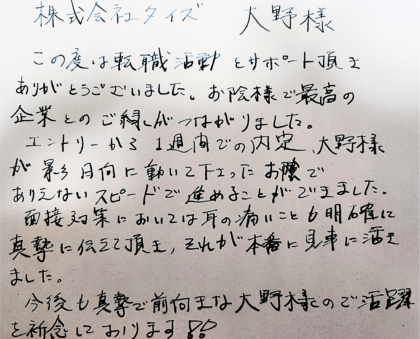 株式会社タイズ 大野様
この度は転職活動をサポート頂き
ありがとうございました。お陰様で最高の
企業とのご縁がつながりました。
エントリーから1週間での内定、大野様
が影日向に動いて下さったお陰で
ありえないスピードで進めることができました。
面接対策においては耳の痛いことも明確に
真摯に伝えて頂き、それが本番に見事に活き
ました。
今後も真摯で前向きな大野様のご活躍
を祈念しております!!